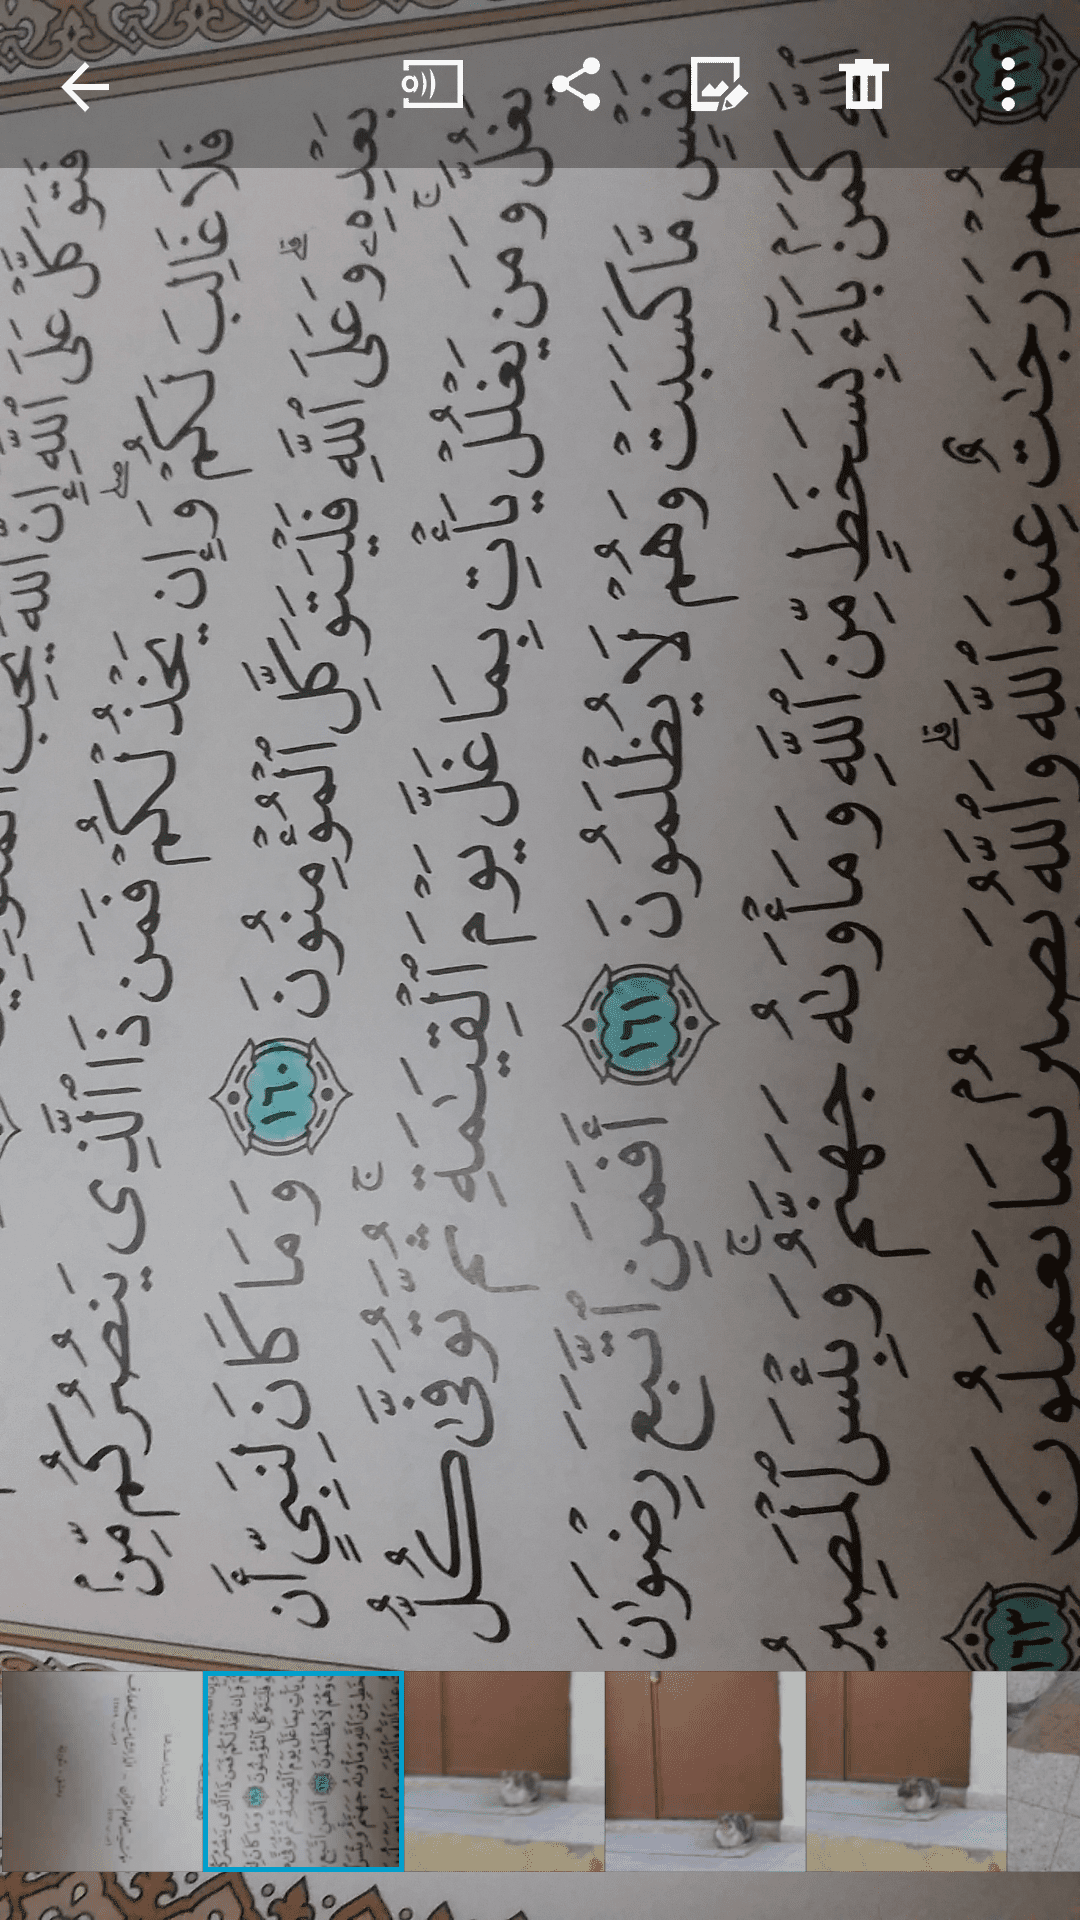 فَتَوَكَّلْ عَلَى ٱللَّهِ إِنَّ ٱللَّهَ يُحِبُّ
فَلَا غَالِبَ لَكُمْ ۖ وَإِن يَخْذُلْكُمْ فَمَن ذَا ٱلَّذِى يَنصُرُكُم مِّنۢ
بَعْدِهِۦ ۗ وَعَلَى ٱللَّهِ فَلْيَتَوَكَّلِ ٱلْمُؤْمِنُونَ ١٦٠ وَمَا كَانَ لِنَبِىٍّ أَن
يَغُلَّ ۚ وَمَن يَغْلُلْ يَأْتِ بِمَا غَلَّ يَوْمَ ٱلْقِيَٰمَةِ ۚ ثُمَّ تُوَفَّىٰ كُلُّ
نَفْسٍ مَّا كَسَبَتْ وَهُمْ لَا يُظْلَمُونَ ١٦١ أَفَمَنِ ٱتَّبَعَ رِضْوَٰنَ
ٱللَّهِ كَمَنۢ بَآءَ بِسَخَطٍ مِّنَ ٱللَّهِ وَمَأْوَىٰهُ جَهَنَّمُ ۚ وَبِئْسَ ٱلْمَصِيرُ
١٦٢ هُمْ دَرَجَٰتٌ عِندَ ٱللَّهِ ۗ وَٱللَّهُ بَصِيرٌۢ بِمَا يَعْمَلُونَ ١٦٣